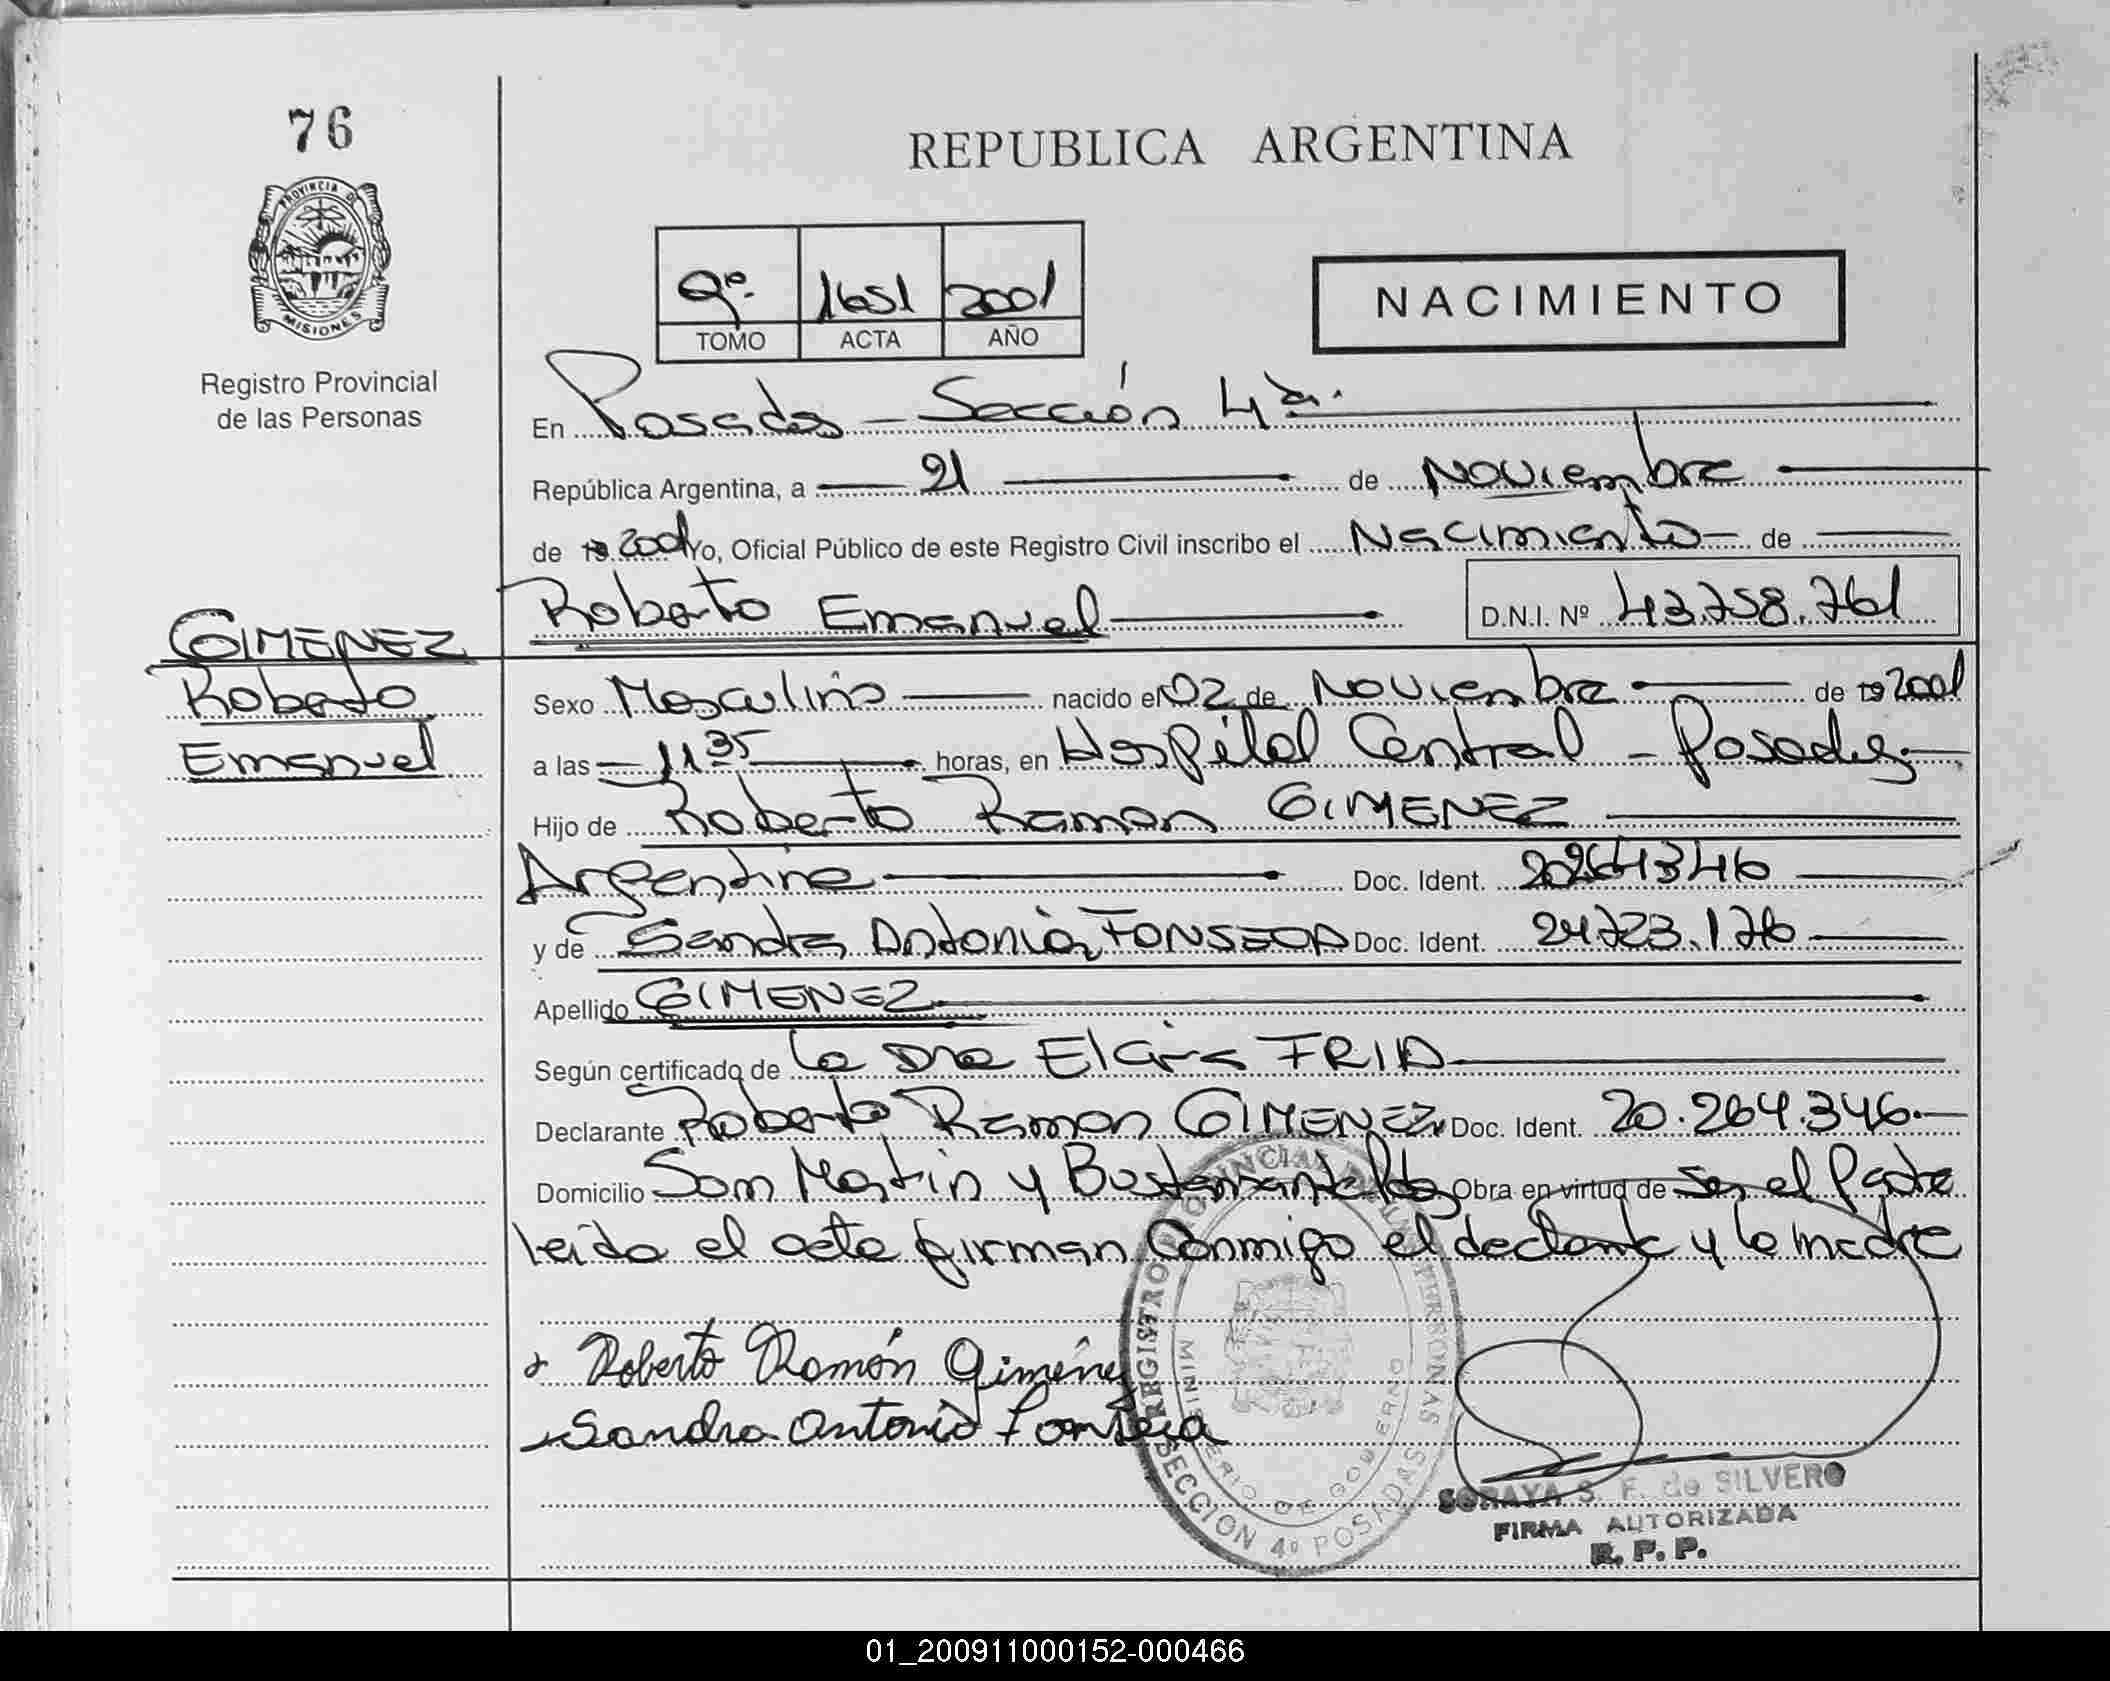 76
PROVINCIA DE
MISIONES
Registro Provincial
de las Personas
REPUBLICA ARGENTINA
9º. 1651 2001
TOMO ACTA AÑO
NACIMIENTO
En Posadas - Sección 4ta.
República Argentina, a 21 de Noviembre
de 19 2001 Yo, Oficial Público de este Registro Civil inscribo el Nacimiento de
Roberto Emanuel D.N.I. Nº 43.758.761
GIMENEZ
Roberto
Emanuel
Sexo Masculino nacido el 02 de Noviembre de 19 2001
a las 11 35 horas, en Hospital Central - Posadas.
Hijo de Roberto Ramon GIMENEZ
Argentina Doc. Ident. 20264346
y de Sandra Antonia FONSECA Doc. Ident. 24723.176
Apellido GIMENEZ
Según certificado de La Dra FRIA
Declarante Roberto Ramon GIMENEZ Doc. Ident. 20.264.346.
Domicilio San Martin y Bustamante Pdas Obra en virtud de ser el Padre
Leida el acta firman Conmigo el declarante y la madre
Roberto Ramón Giménez
Sandra Antonia Fonseca
REGISTRO PROVINCIAL DE LAS PERSONAS
MINISTERIO DE GOBIERNO
SECCION 4º POSADAS
SORAYA S. F. de SILVERO
FIRMA AUTORIZADA
R. P. P.
01_200911000152-000466